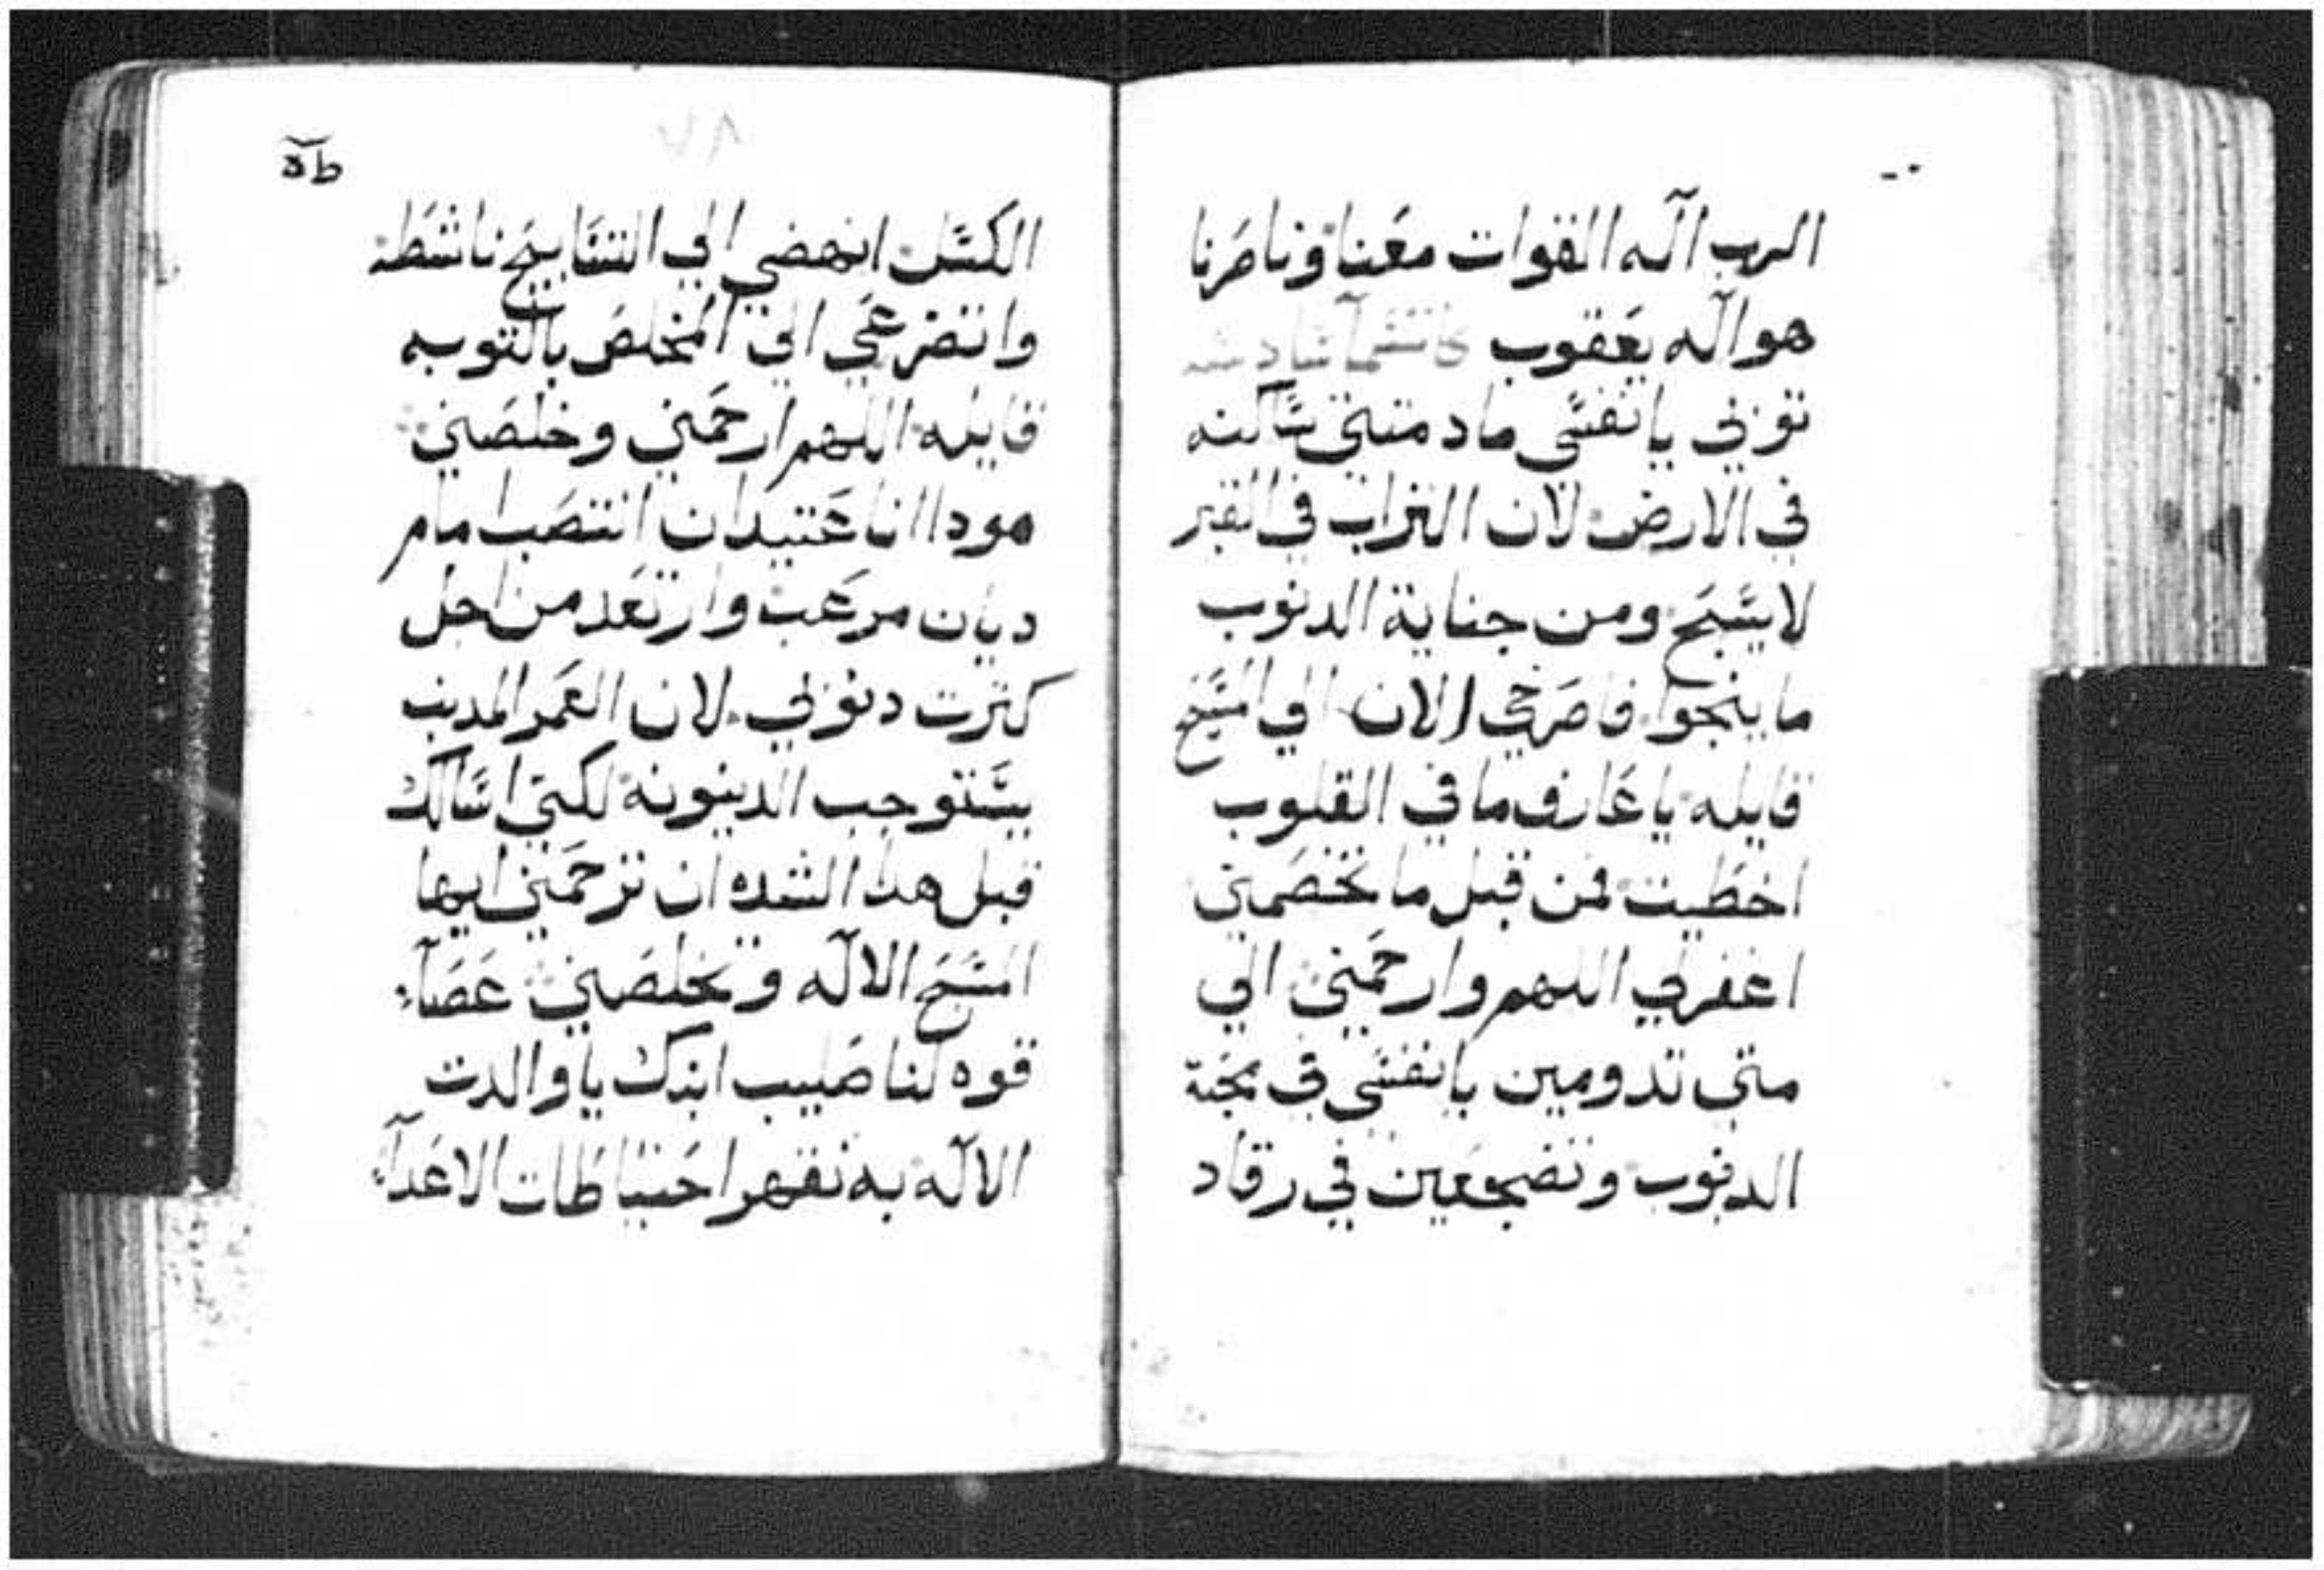 الرب اله القوات معنا وناصرنا
هو اله يعقوب
توبي يا نفسي ما دمتي ساكنه
في الارض لان التراب في القبر
لا يسبح ومن جناية الدنوب
ما ينجوا فاصرخي الان الي المسيح
قايله يا عارف ما في القلوب
اخطيت فمن قبل ما تخصمني
اغفرلي اللهم وارحمني الي
متي تدومين يا نفسي في محبة
الدنوب وتضجعين في رقاد
٧٨
الكسل انهضي الي التسابيح ناشطه
واتضرعي الي المخلص بالتوبه
قايله اللهم ارحمني وخلصني
هودا انا عتيد ان انتصب امام
ديان مرعب وارتعد من اجل
كترت دنوبي لان العمر المدنب
يستوجب الدينونة لكني اسالك
قبل هدا الشده ان ترحمني ايها
المسيح الاله وتخلصني عصاء
قوه لنا صليب ابنك يا والدت
الاله به نقهر احتياطات الاعداء